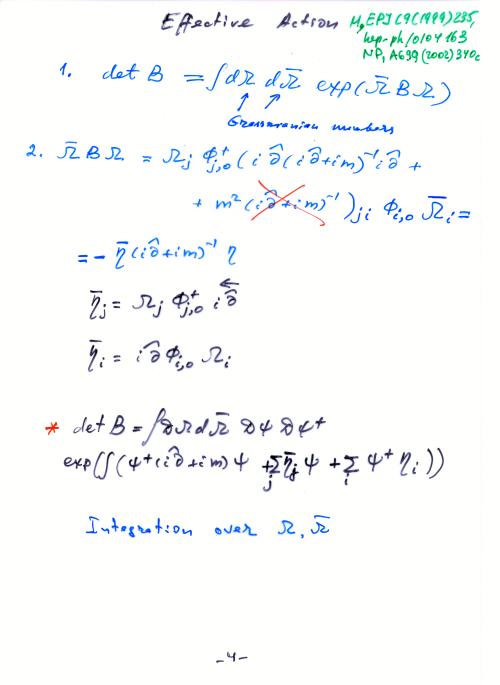 Effective Action M, EPJ C9 (1999) 235,
hep-ph/0104163
NP, A699 (2002) 340c
1. det B = ∫dΩ dΩ̄ exp(Ω̄ B Ω)
Grassmanian numbers
2. Ω̄ B Ω = Ω_j Φ^+_{j,0} (i ∂̂ (i ∂̂ + im)^{-1} i ∂̂ +
+ m² (i ∂̂ + im)^{-1})_{ji} Φ_{i,0} Ω̄_i =
= - η̄ (i ∂̂ + im)^{-1} η
η̄_j = Ω_j Φ^+_{j,0} i ∂̂
η̄_i = i ∂̂ Φ_{i,0} Ω_i
* det B = ∫DΩ dΩ̄ Dψ Dψ^+
exp(∫(ψ^+ (i ∂̂ + im) ψ + Σ_j η̄_j ψ + Σ_i ψ^+ η_i))
Integration over Ω, Ω̄
-4-